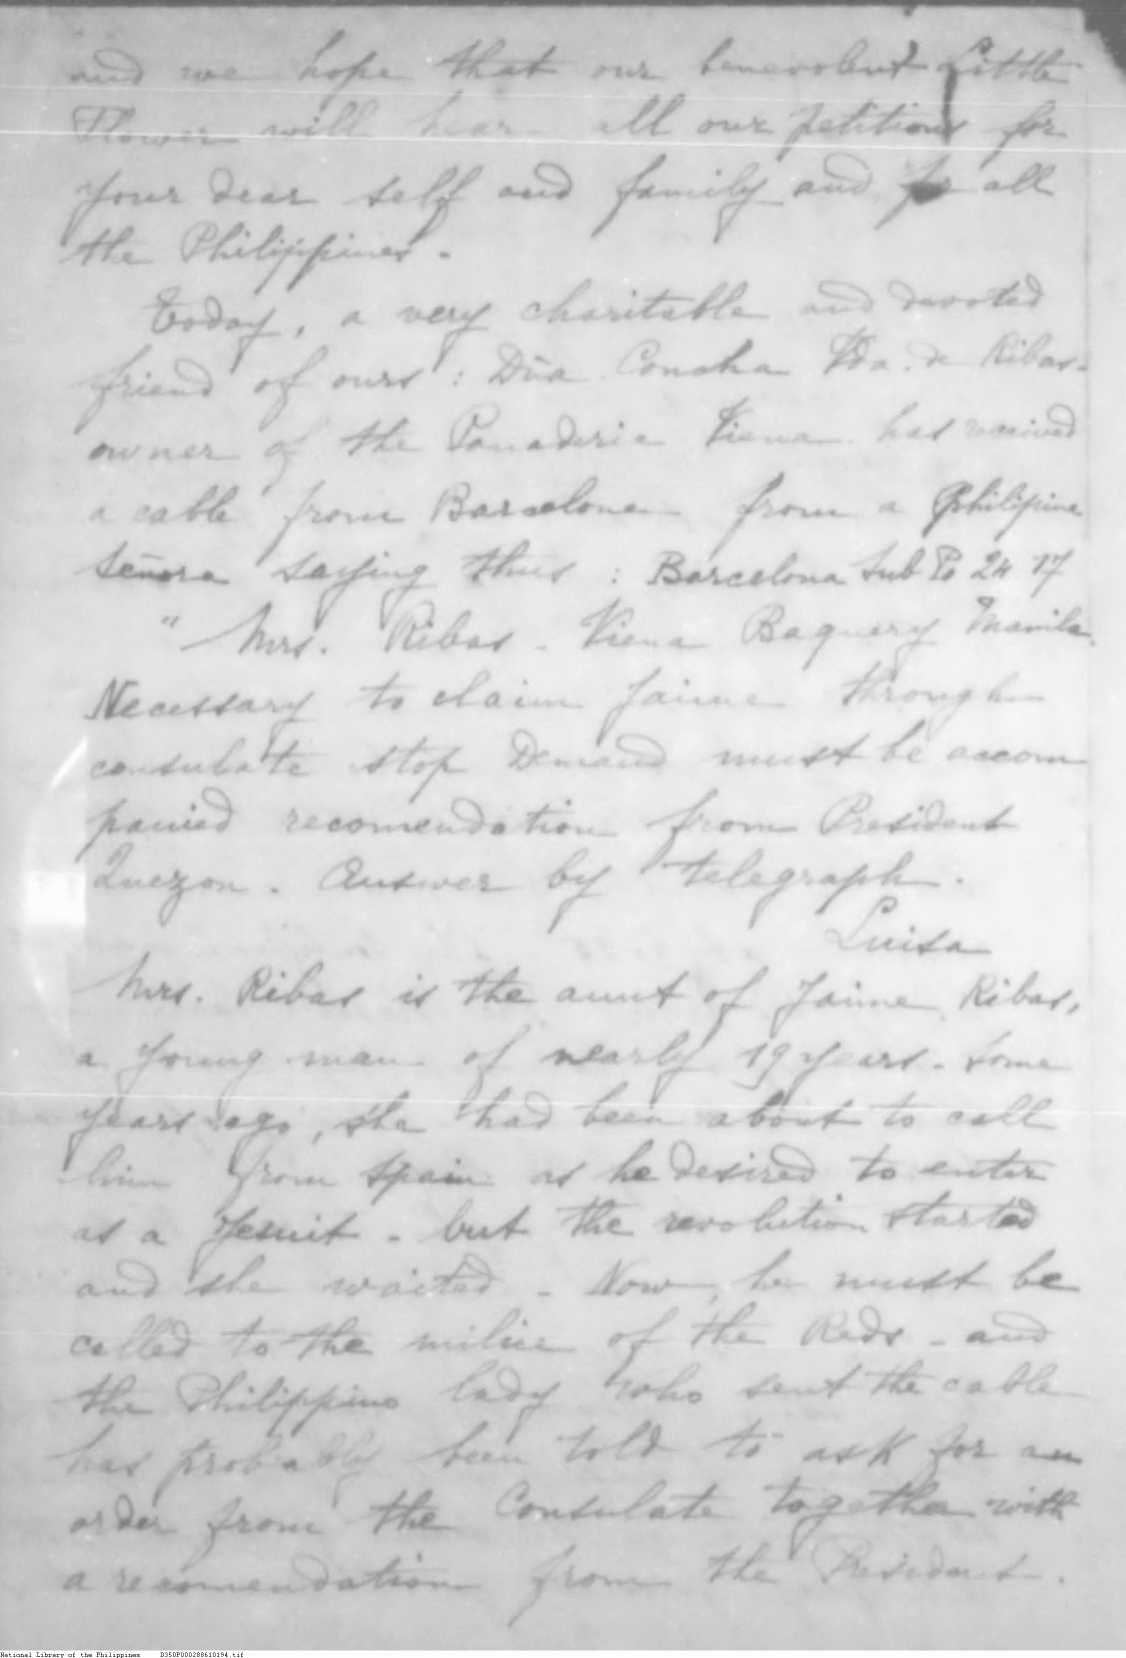 and we hope that our benevolent Little
Flower will hear all our petitions for
your dear self and family and for all
the Philippines.
Today, a very charitable and devoted
friend of ours: Dña. Concha Vda. de Ribas-
owner of the Panaderia Viena has received
a cable from Barcelona from a Philipine
Señora saying thus: Barcelona Sub Po 24 17
" Mrs. Ribas - Viena Baquery Manila.
Necessary to claim Jaime through
consulate stop Demand must be accom
panied recomendation from President
Quezon. Answer by telegraph.
Luisa
Mrs. Ribas is the aunt of Jaime Ribas,
a young man of nearly 19 years. Some
years ago, she had been about to call
him from Spain as he desired to enter
as a Jesuit - but the revolution started
and she waited - Now, he must be
called to the milice of the Reds - and
the Philippino lady who sent the cable
has probably been told to ask for an
order from the Consulate together with
a recomendation from the President.
National Library of the Philippines D350P000288610194.tif